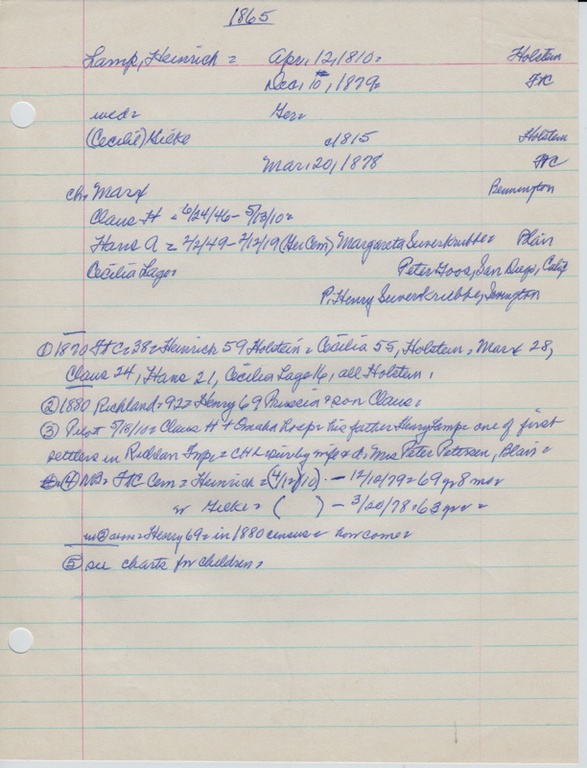 1865
Lamp, Heinrich = Apr. 12, 1810 = Holstein
Dec. 10, 1879 = FtC
wed = Ger =
(Cecilie) Gielke c1815 Holstein
Mar. 20, 1878 FtC
ch. Marx Bennington
Claus H = 6/24/46 - 5/13/10 =
Hans A = 2/2/49 - 2/12/19 (Ger Cem) Margareta Suverkrubbe = Blair
Cecilia Lage = Peter Goos, San Diego, Calif
P. Henry Suverkrubbe, Bennington
① 1870 FtC = 38 = Heinrich 59 Holstein = Cecilia 55, Holstein, Marx 28,
Claus 24, Hans 21, Cecilia Lage 16, all Holstein,
② 1880 Richland = 92 = Henry 69 Prussia & son Claus =
③ 5/13/10 = Claus H + Omaha = his father Henry Lamp = one of first
settlers in = wife & d, Mrs Peter Petersen, Blair =
④ NB = FtC Cem = Heinrich = (4/12/10) - 12/10/79 = 69 yr 8 mo =
w Gielke = ( ) - 3/20/78 = 63 yr =
Henry 69 = in 1880 census = how come =
⑤ see charts for children,